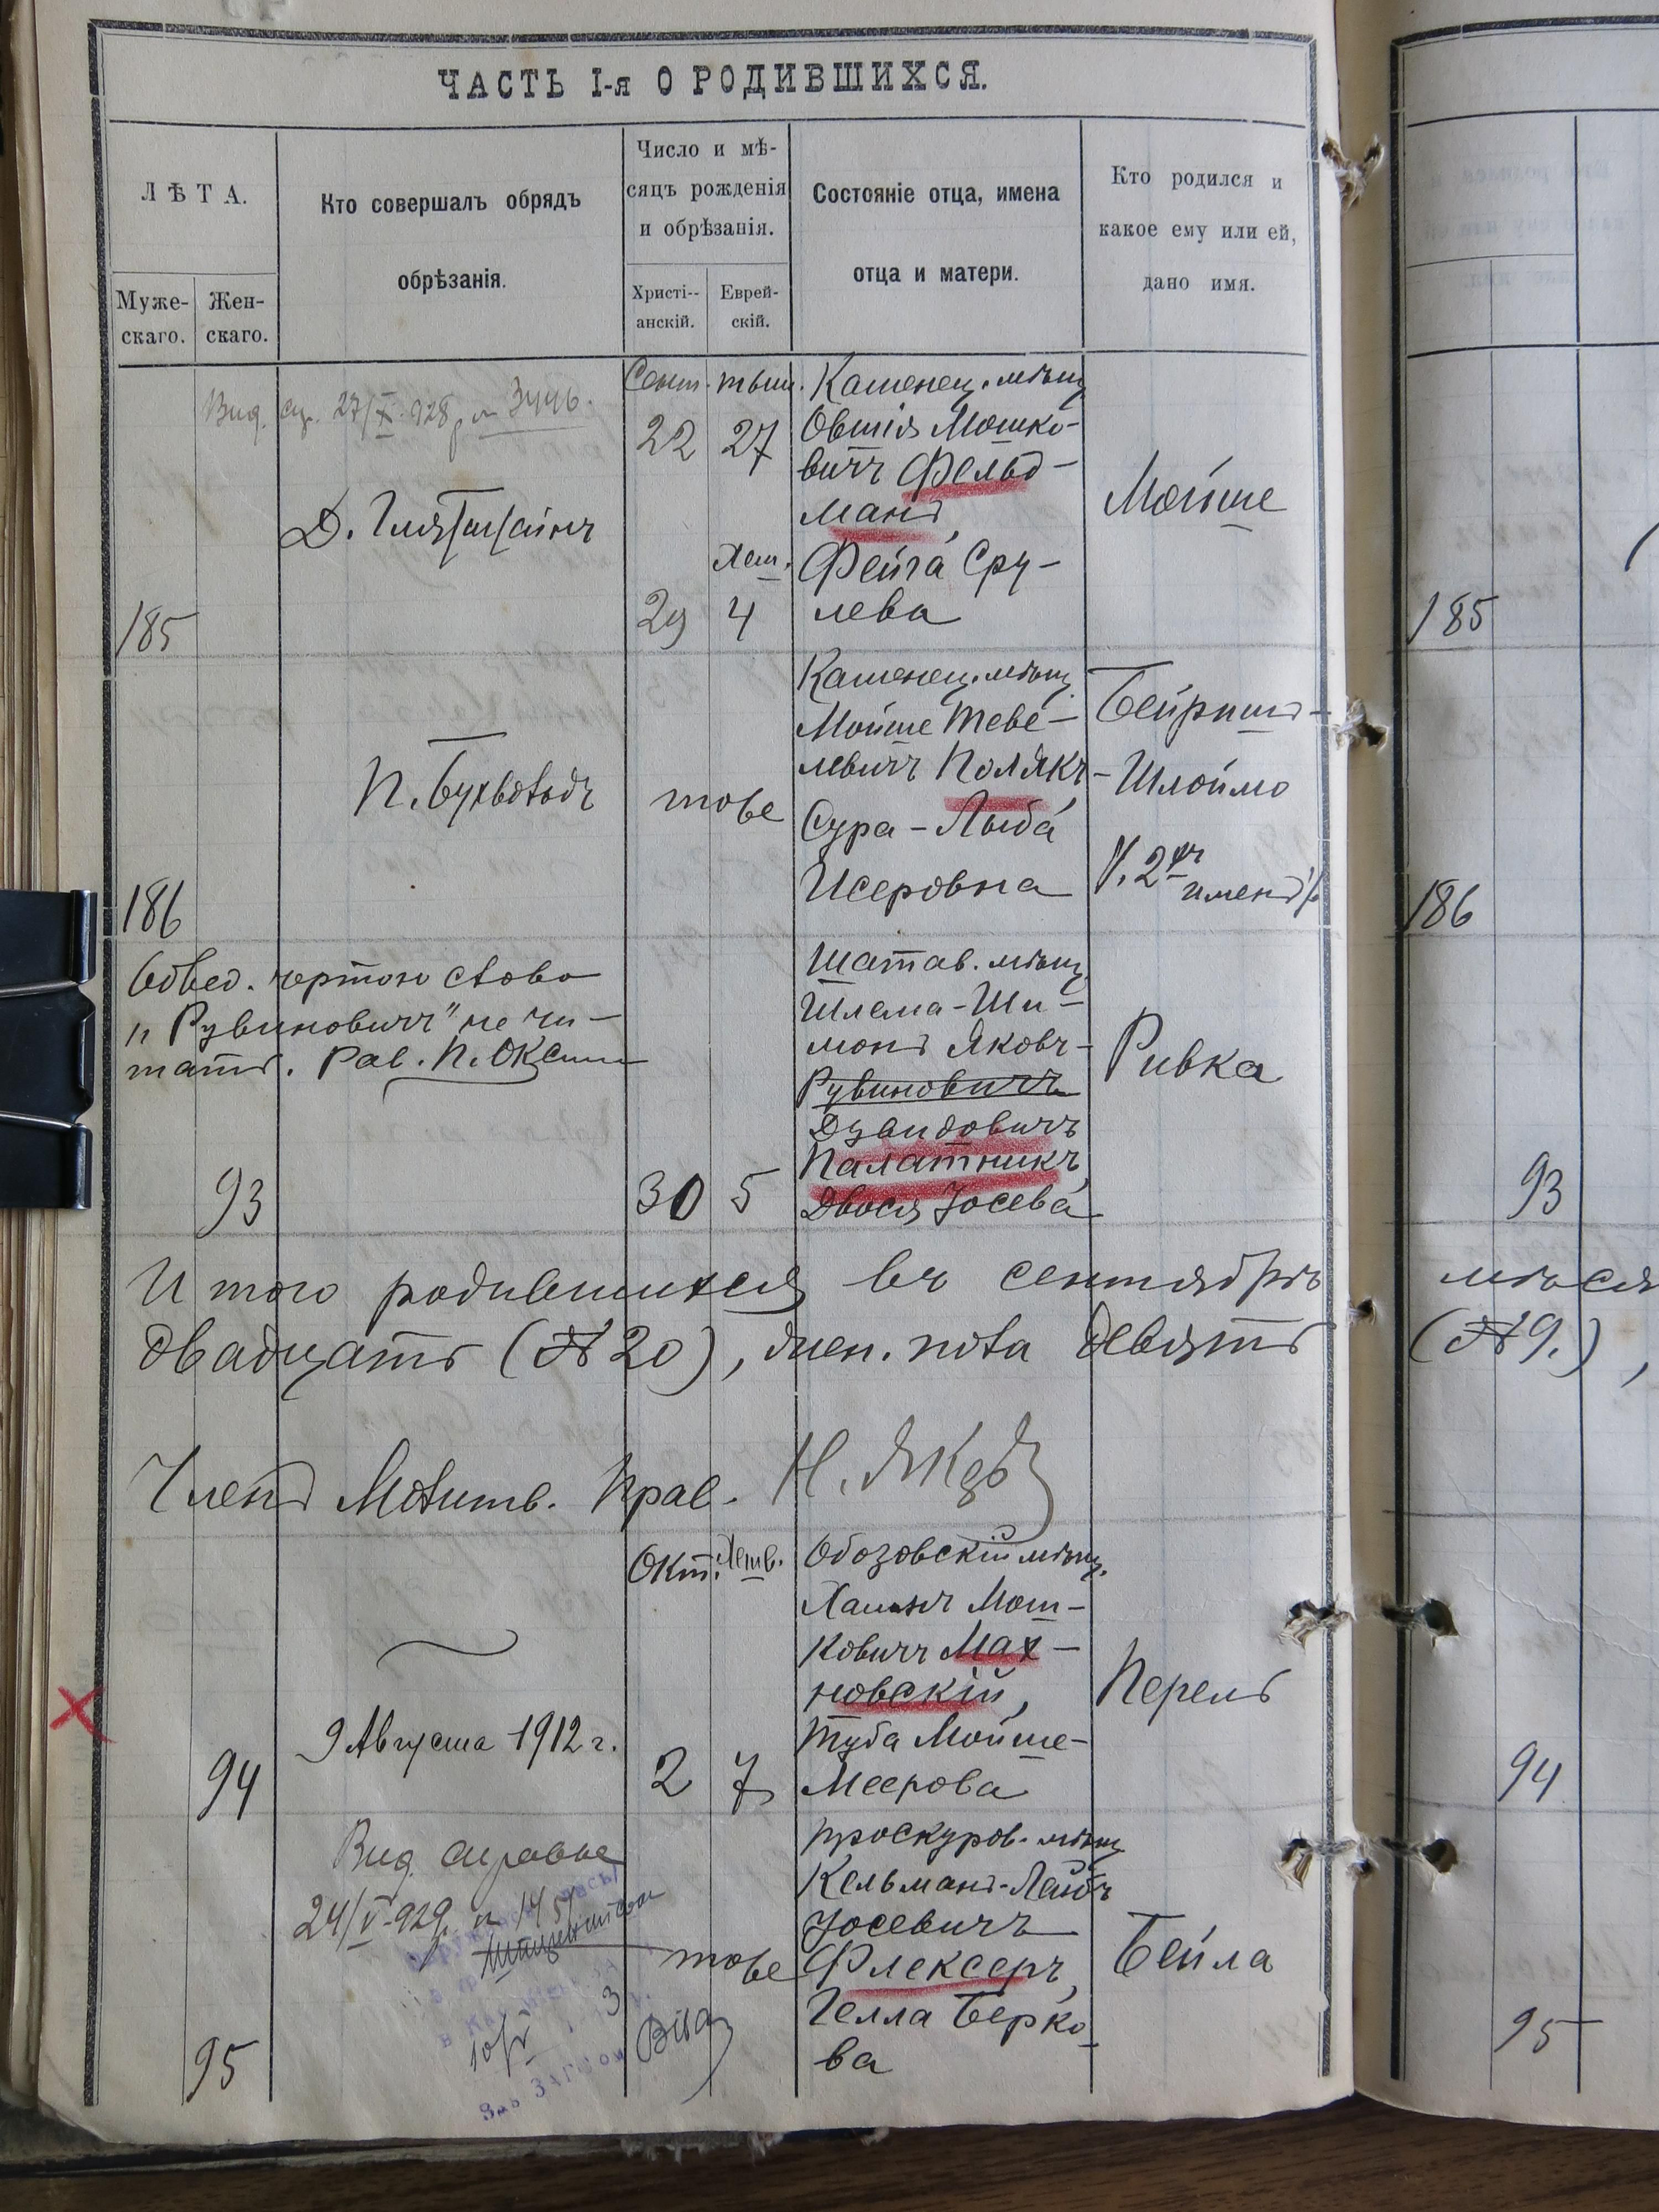 ЧАСТЬ I-я О РОДИВШИХСЯ.
ЛѢТА.
Муже-
скаго.
Жен-
скаго.
Кто совершалъ обрядъ
обрѣзанія.
Число и мѣ-
сяцъ рожденія
и обрѣзанія.
Христі--
анскій.
Еврей-
скій.
Состояніе отца, имена
отца и матери.
Кто родился и
какое ему или ей,
дано имя.
185
Вид. 27/X 928 р 3446.
Сент. тиш.
22 27
Хеш.
29 4
Каменец. мѣщ
Овшія Мошко-
вичъ Фельд-
манъ,
Фейга Сру-
лева
Мойше
185
186
П. Бухвольдъ
тоже
Каменец. мѣщ.
Мойше Теве-
левичъ Полякъ,
Сура-Лыба
Исеровна
Бейришъ-
-Шлоймо
186
Обвед. чертою слово
„Рувиновичъ" не чи-
тать. Рав. П. Оксман
93
30 5
Шатав. мѣщ
Шлема-Ши-
монъ Яковъ-
Рувиновичъ
Дувидовичъ
Палатникъ,
Двося Іосева
Ривка
93
Итого родившихся въ сентябрѣ мѣся
двадцать (№ 20), жен. пола девять (№ 9.),
Членъ Молитв. Прав. Н. Якуб
94
9 Августа 1912 г.
Окт. Хешв.
2 7
Обозовскій мѣщ.
Хаимъ Мош-
ковичъ Мах-
новскій,
Туба Мойше-
Меерова
Перель
94
95
Вид. справка
24/V-929р. 145
10/V 3
тоже
Проскуров. мѣщ
Кельманъ-Лейбъ
Іосевичъ
Флексеръ,
Гелла Берко-
ва
Бейла
95